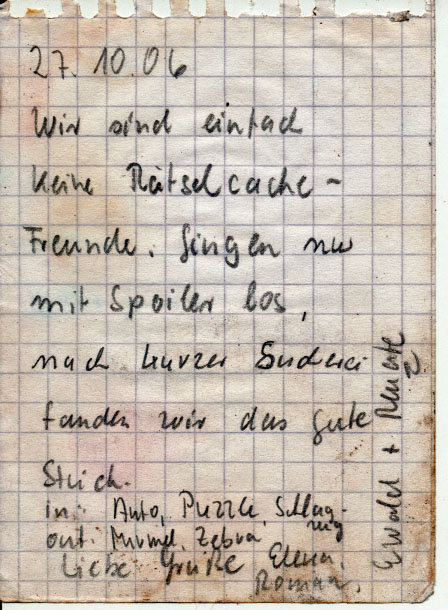 27.10.06
Wir sind einfach
keine Rätselcache-
Freunde. Gingen nur
mit Spoiler los,
nach kurzer Sucherei
fanden wir das gute
Stück.
in: Auto, Puzzle, Schlag-
zeug
out: Murmel, Zebra
Liebe Grüße Elena,
Roman,
Ewald + Renate